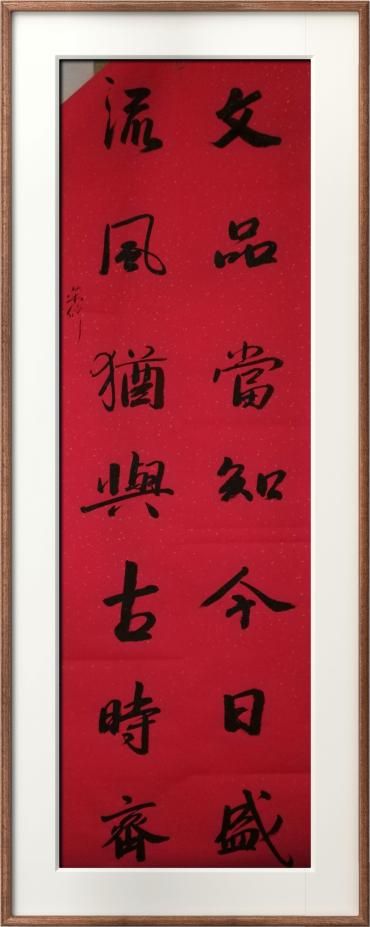 文品當知今日盛
流風猶與古時齊